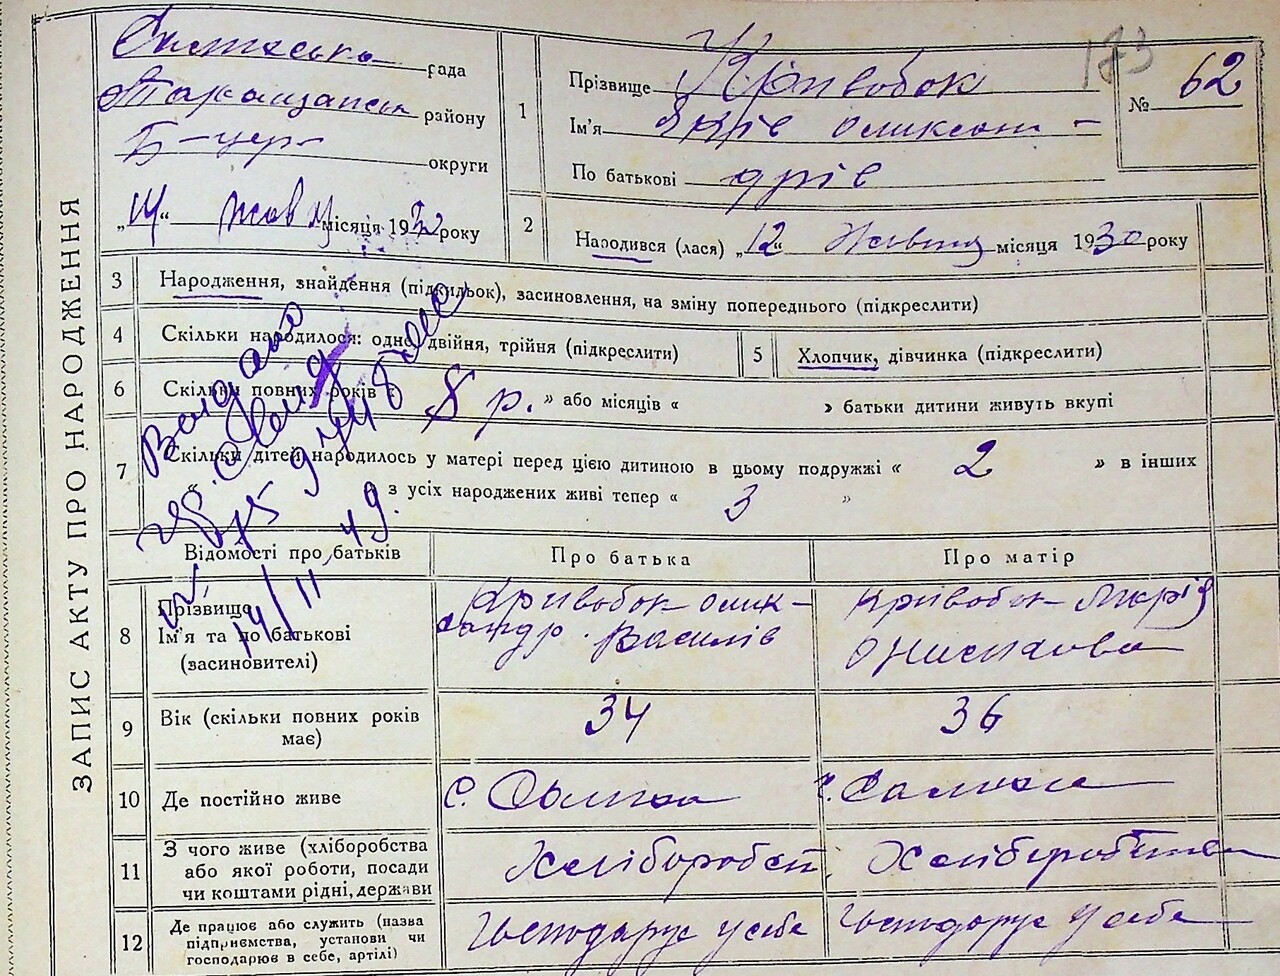 ЗАПИС АКТУ ПРО НАРОДЖЕННЯ
рада
району
Б-цер- округи
"14" жовт місяця 1930 року
1
Прізвище Кривобок
Ім'я Яків Олександ-
По батькові дрів
173
№ 62
2
Народився (лася) "12" Жовтня місяця 1930 року
3
Народження, знайдення (підкидьок), засиновлення, на зміну попереднього (підкреслити)
4
Скільки народилося: одно, двійня, трійня (підкреслити)
5
Хлопчик, дівчинка (підкреслити)
6
Скільки повних років „ 8 р. " або місяців « » батьки дитини живуть вкупі
7
Скільки дітей народилось у матері перед цією дитиною в цьому подружжі « 2 » в інших
« з усіх народжених живі тепер « 3 »
14/11 49.
Відомості про батьків
Про батька
Про матір
8
Прізвище
Ім'я та по батькові
(засиновителі)
Кривобок Олик-
сандр. Василів
Кривобок
9
Вік (скільки повних років
має)
34
36
10
Де постійно живе
с.
с.
11
З чого живе (хліборобства
або якої роботи, посади
чи коштами рідні, держави
Хлібороб
Хліборобства
12
Де працює або служить (назва
підприємства, установи чи
господарює в себе, артілі)
Господарує у себе
Господарує у себе